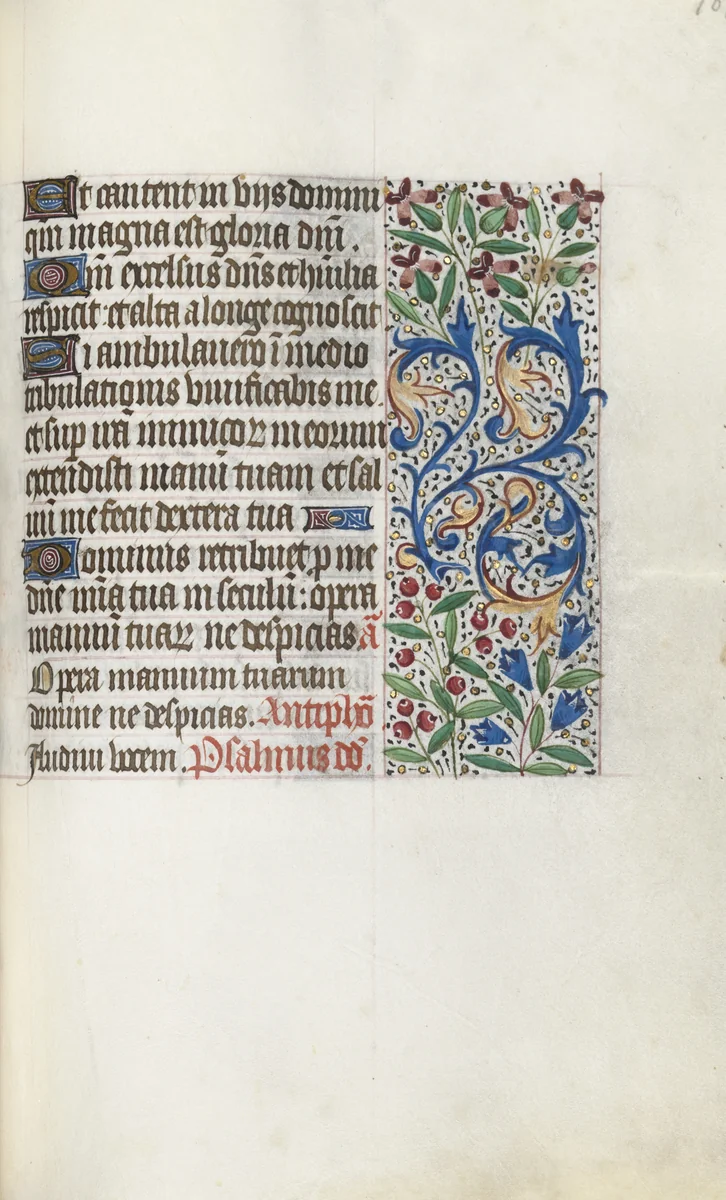 Et cantent in viis domini
qm̄ magna est gloria dn̄i.
Qm̄ excelsus dn̄s et hūilia
respicit: et alta a longe cognoscit
Si ambulauero ī medio
tribulationis viuificabis me
et sup irā inimicoꝝ meorum
extendisti manū tuam et sal
uū me fecit dextera tua
Dominus retribuet ꝓ me
dn̄e mīa tua in seculū: opera
manuū tuaꝝ ne despicias. ā
Opera manuum tuarum
domine ne despicias. Antiphō
Audiui vocem. Psalmus dd̄.